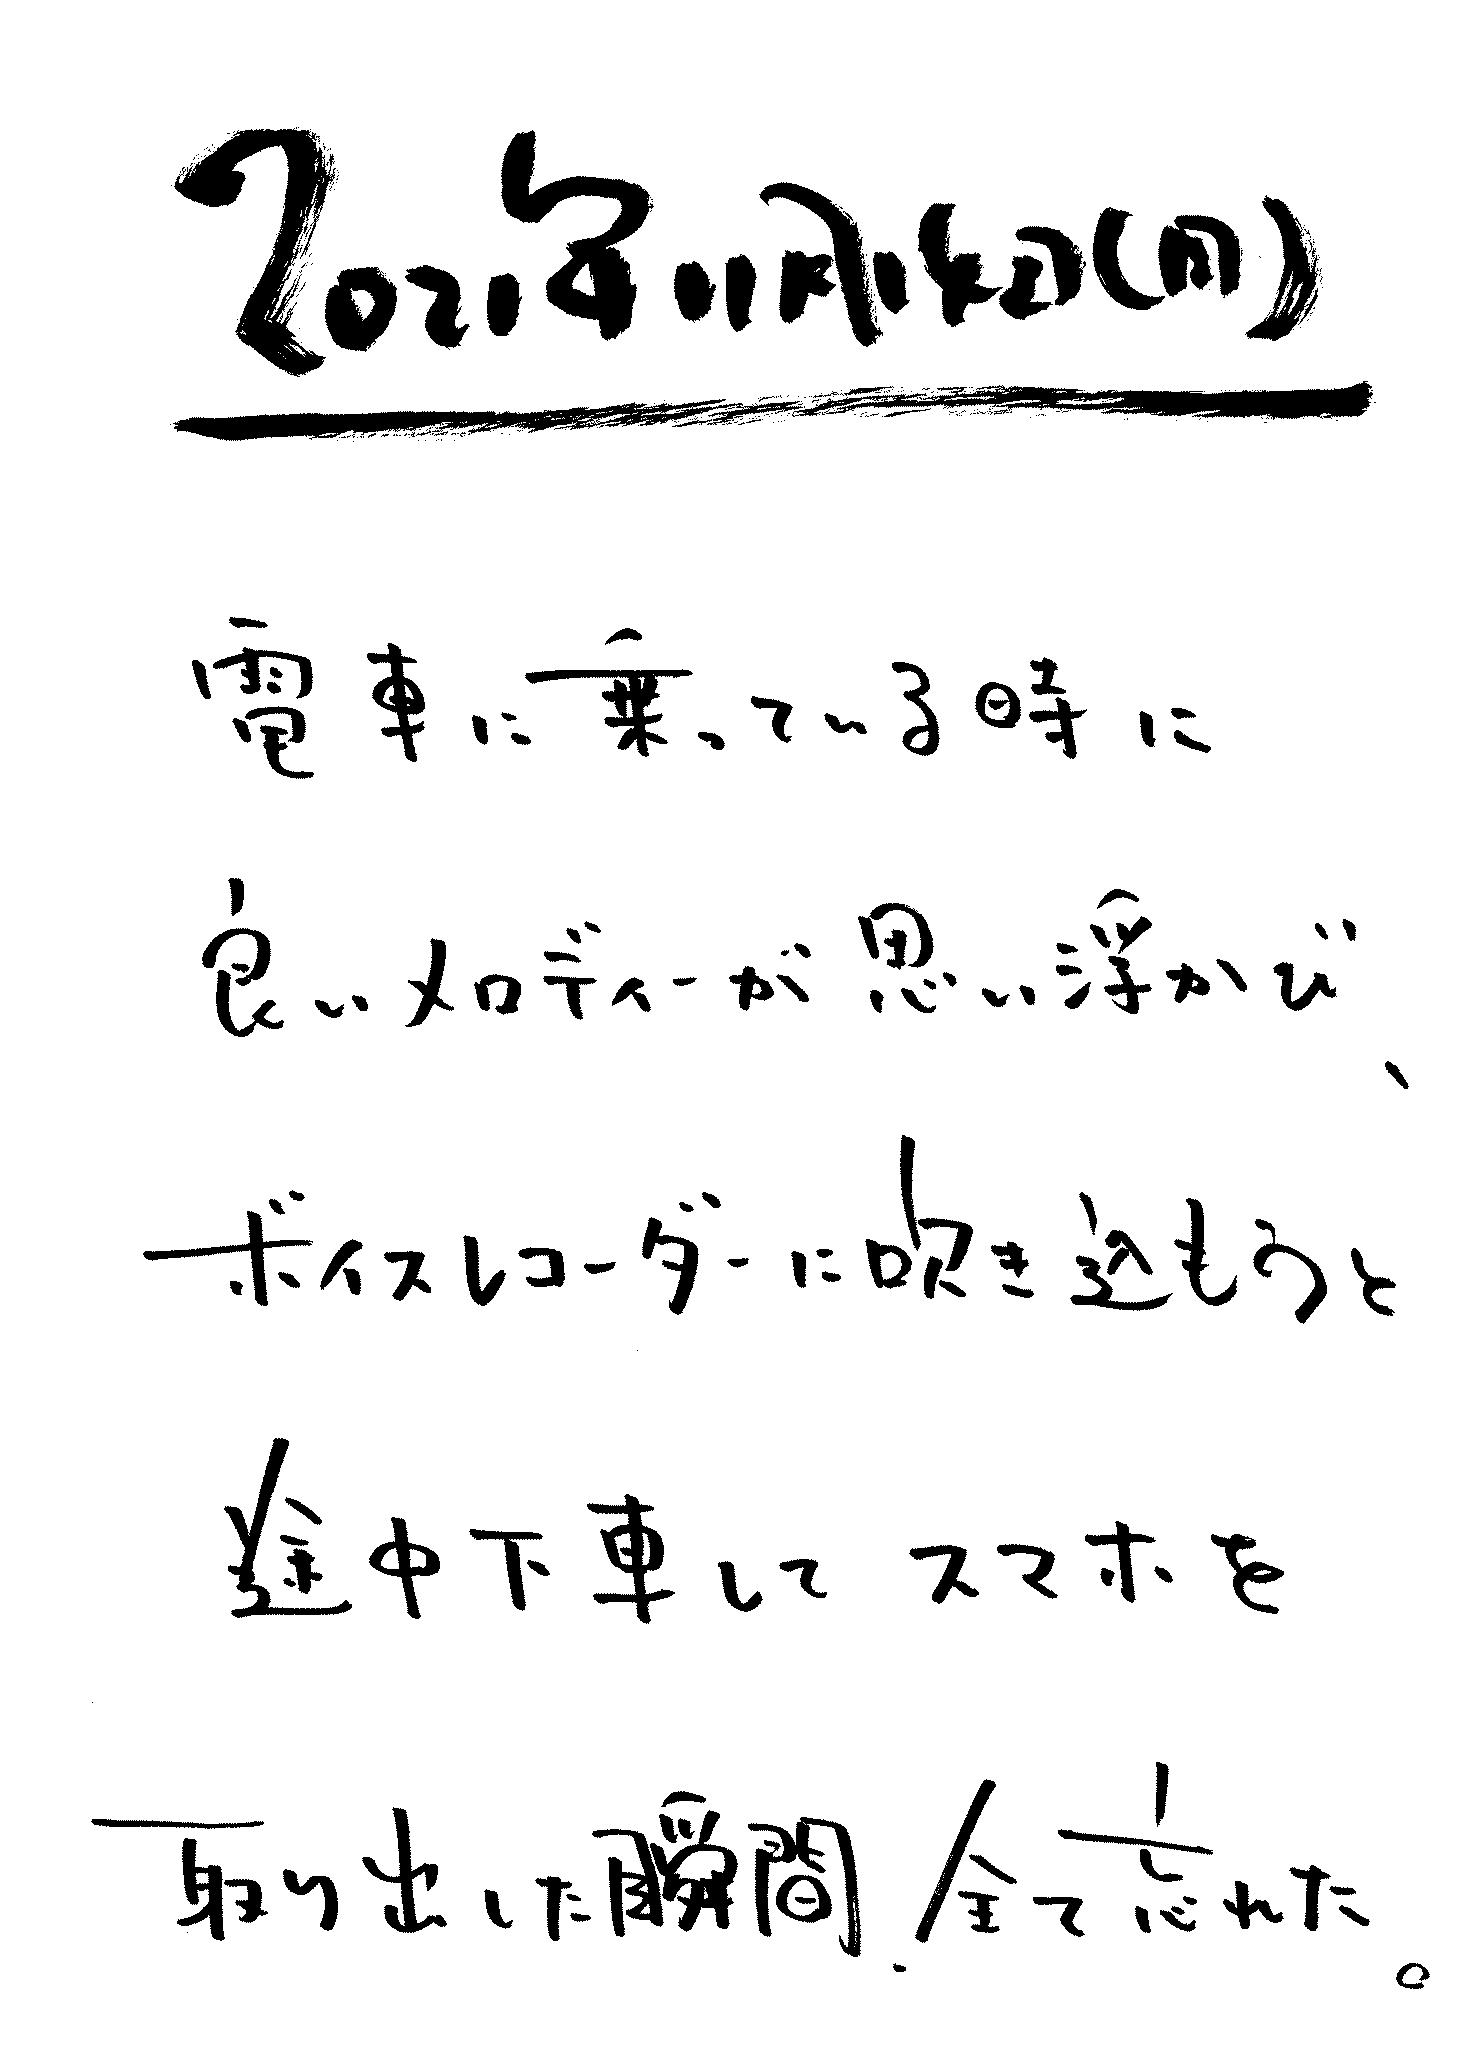 2021年11月14日(月)
電車に乗っている時に
良いメロディーが思い浮かび、
ボイスレコーダーに吹き込もうと
途中下車してスマホを
取り出した瞬間、全て忘れた。